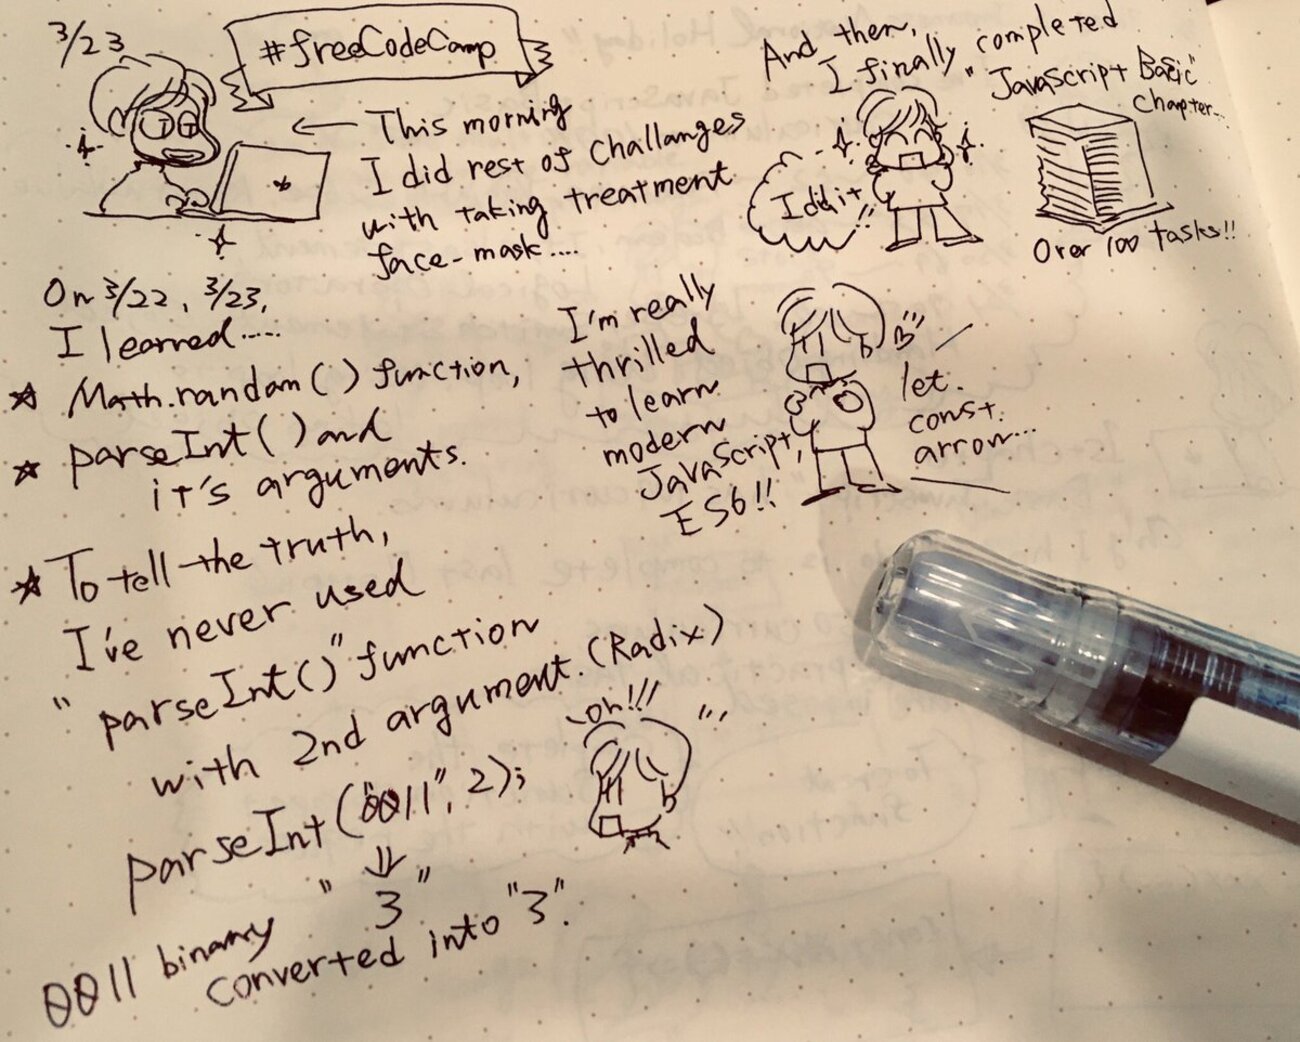 3/23
#freeCodeCamp
This morning
I did rest of challanges
with taking treatment
face-mask....
And then,
I finally completed
"JavaScript Basic"
chapter...
I did it!!
Over 100 tasks!!
On 3/22, 3/23,
I learned.....
☆ Math.random() function,
☆ parseInt() and
it's arguments.
☆ To tell the truth,
I've never used
"parseInt()" function
with 2nd argument.(Radix)
parseInt("0011", 2);
⇓
"3"
0011 binary
converted into "3".
Oh!!!
I'm really
thrilled
to learn
modern
JavaScript,
ES6!!
let.
const.
arrow...